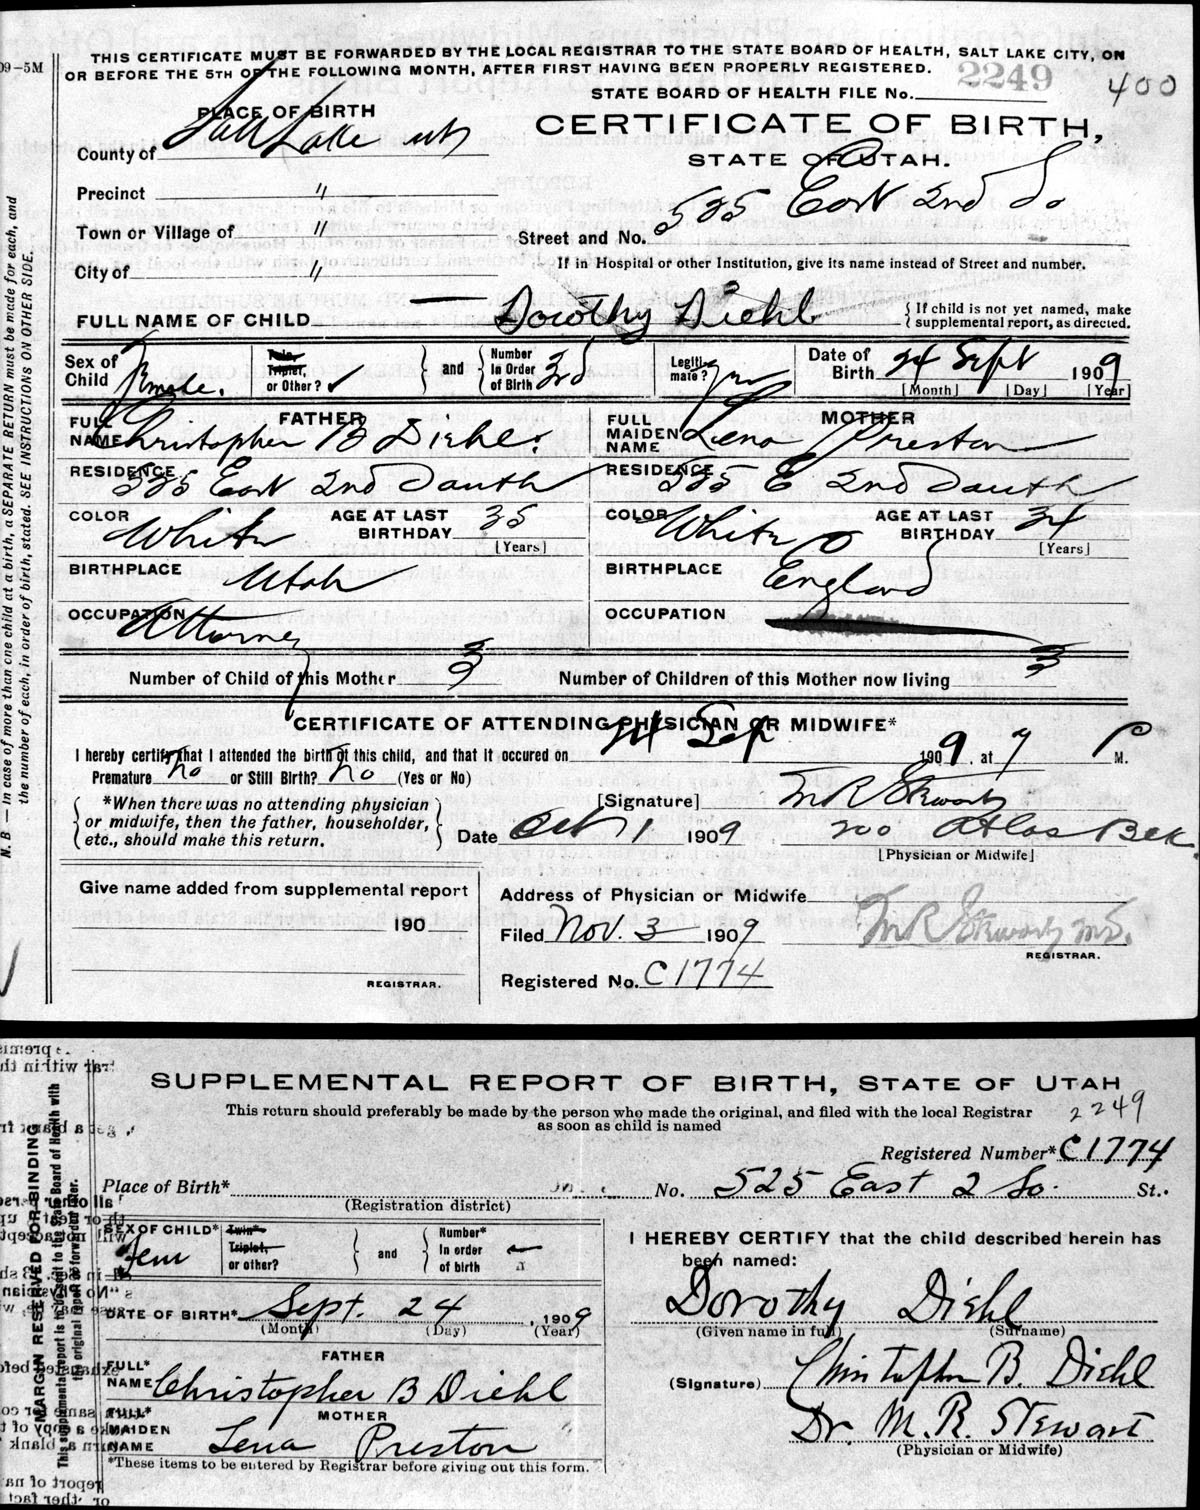 THIS CERTIFICATE MUST BE FORWARDED BY THE LOCAL REGISTRAR TO THE STATE BOARD OF HEALTH, SALT LAKE CITY, ON
OR BEFORE THE 5TH OF THE FOLLOWING MONTH, AFTER FIRST HAVING BEEN PROPERLY REGISTERED.
09-5M
STATE BOARD OF HEALTH FILE No. 2249
400
PLACE OF BIRTH
County of Salt Lake
CERTIFICATE OF BIRTH,
STATE OF UTAH.
Precinct "
Town or Village of "
Street and No. 525 East 2nd So
City of "
If in Hospital or other Institution, give its name instead of Street and number.
FULL NAME OF CHILD Dorothy Diehl
{ If child is not yet named, make
supplemental report, as directed.
Sex of Child Female.
Twin, Triplet, or Other? ✓
and
Number In Order of Birth 3rd
Legitimate? yes
Date of Birth 24 Sept 1909
[Month] [Day] [Year]
FATHER
FULL NAME Christopher B Diehl.
MOTHER
FULL MAIDEN NAME Lena Preston
RESIDENCE 525 East 2nd South
RESIDENCE 525 E 2nd South
COLOR White
AGE AT LAST BIRTHDAY 35
[Years]
COLOR White
AGE AT LAST BIRTHDAY 34
[Years]
BIRTHPLACE Utah
BIRTHPLACE England
OCCUPATION Attorney
OCCUPATION
Number of Child of this Mother 3
Number of Children of this Mother now living 3
CERTIFICATE OF ATTENDING PHYSICIAN OR MIDWIFE*
I hereby certify that I attended the birth of this child, and that it occured on 24 Sep 1909, at 7 P M.
Premature No or Still Birth? No (Yes or No)
*When there was no attending physician
or midwife, then the father, householder,
etc., should make this return.
[Signature] M R Stewart
Date Oct 1 1909
200 Atlas Blk.
[Physician or Midwife]
Give name added from supplemental report
190
REGISTRAR.
Address of Physician or Midwife
Filed Nov. 3 1909
M R Stewart M.D.
REGISTRAR.
Registered No. C1774
N. B — In case of more than one child at a birth, a SEPARATE RETURN must be made for each, and
the number of each, in order of birth, stated. SEE INSTRUCTIONS ON OTHER SIDE.
SUPPLEMENTAL REPORT OF BIRTH, STATE OF UTAH
This return should preferably be made by the person who made the original, and filed with the local Registrar
as soon as child is named
2249
Registered Number* C1774
Place of Birth* No. 525 East 2 So. St.
(Registration district)
SEX OF CHILD* Fem
Twin* Triplet, or other?
and
Number* In order of birth
I HEREBY CERTIFY that the child described herein has
been named:
DATE OF BIRTH* Sept. 24, 1909
(Month) (Day) (Year)
Dorothy Diehl
(Given name in full) (Surname)
FATHER
FULL* NAME Christopher B Diehl
(Signature) Christopher B. Diehl
MOTHER
FULL* MAIDEN NAME Lena Preston
Dr. M. R. Stewart
(Physician or Midwife)
*These items to be entered by Registrar before giving out this form.
MARGIN RESERVED FOR BINDING
This supplemental report is to be sent to the State Board of Health with
the original report as forwarded later.